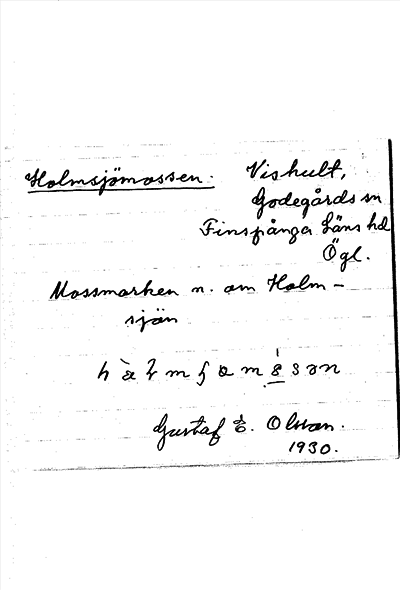 Holmsjömossen. Vishult,
Godegårds sn
Finspånga läns hd
Ögl.
Mossmarken n. om Holm-
sjön
Gustaf E. Olsson.
1930.